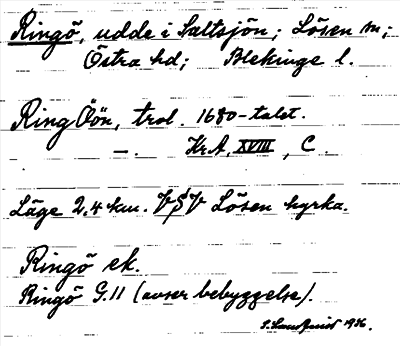 Ringö, udde i Saltsjön; Lösen sn;
Östra hd; Blekinge l.
Ring Öön, trol. 1680-talet.
—. Kr.A, XVIII, C.
Läge 2.4 km. VSV Lösen kyrka.
Ringö ek.
Ringö G.11 (avser bebyggelse).
1936.